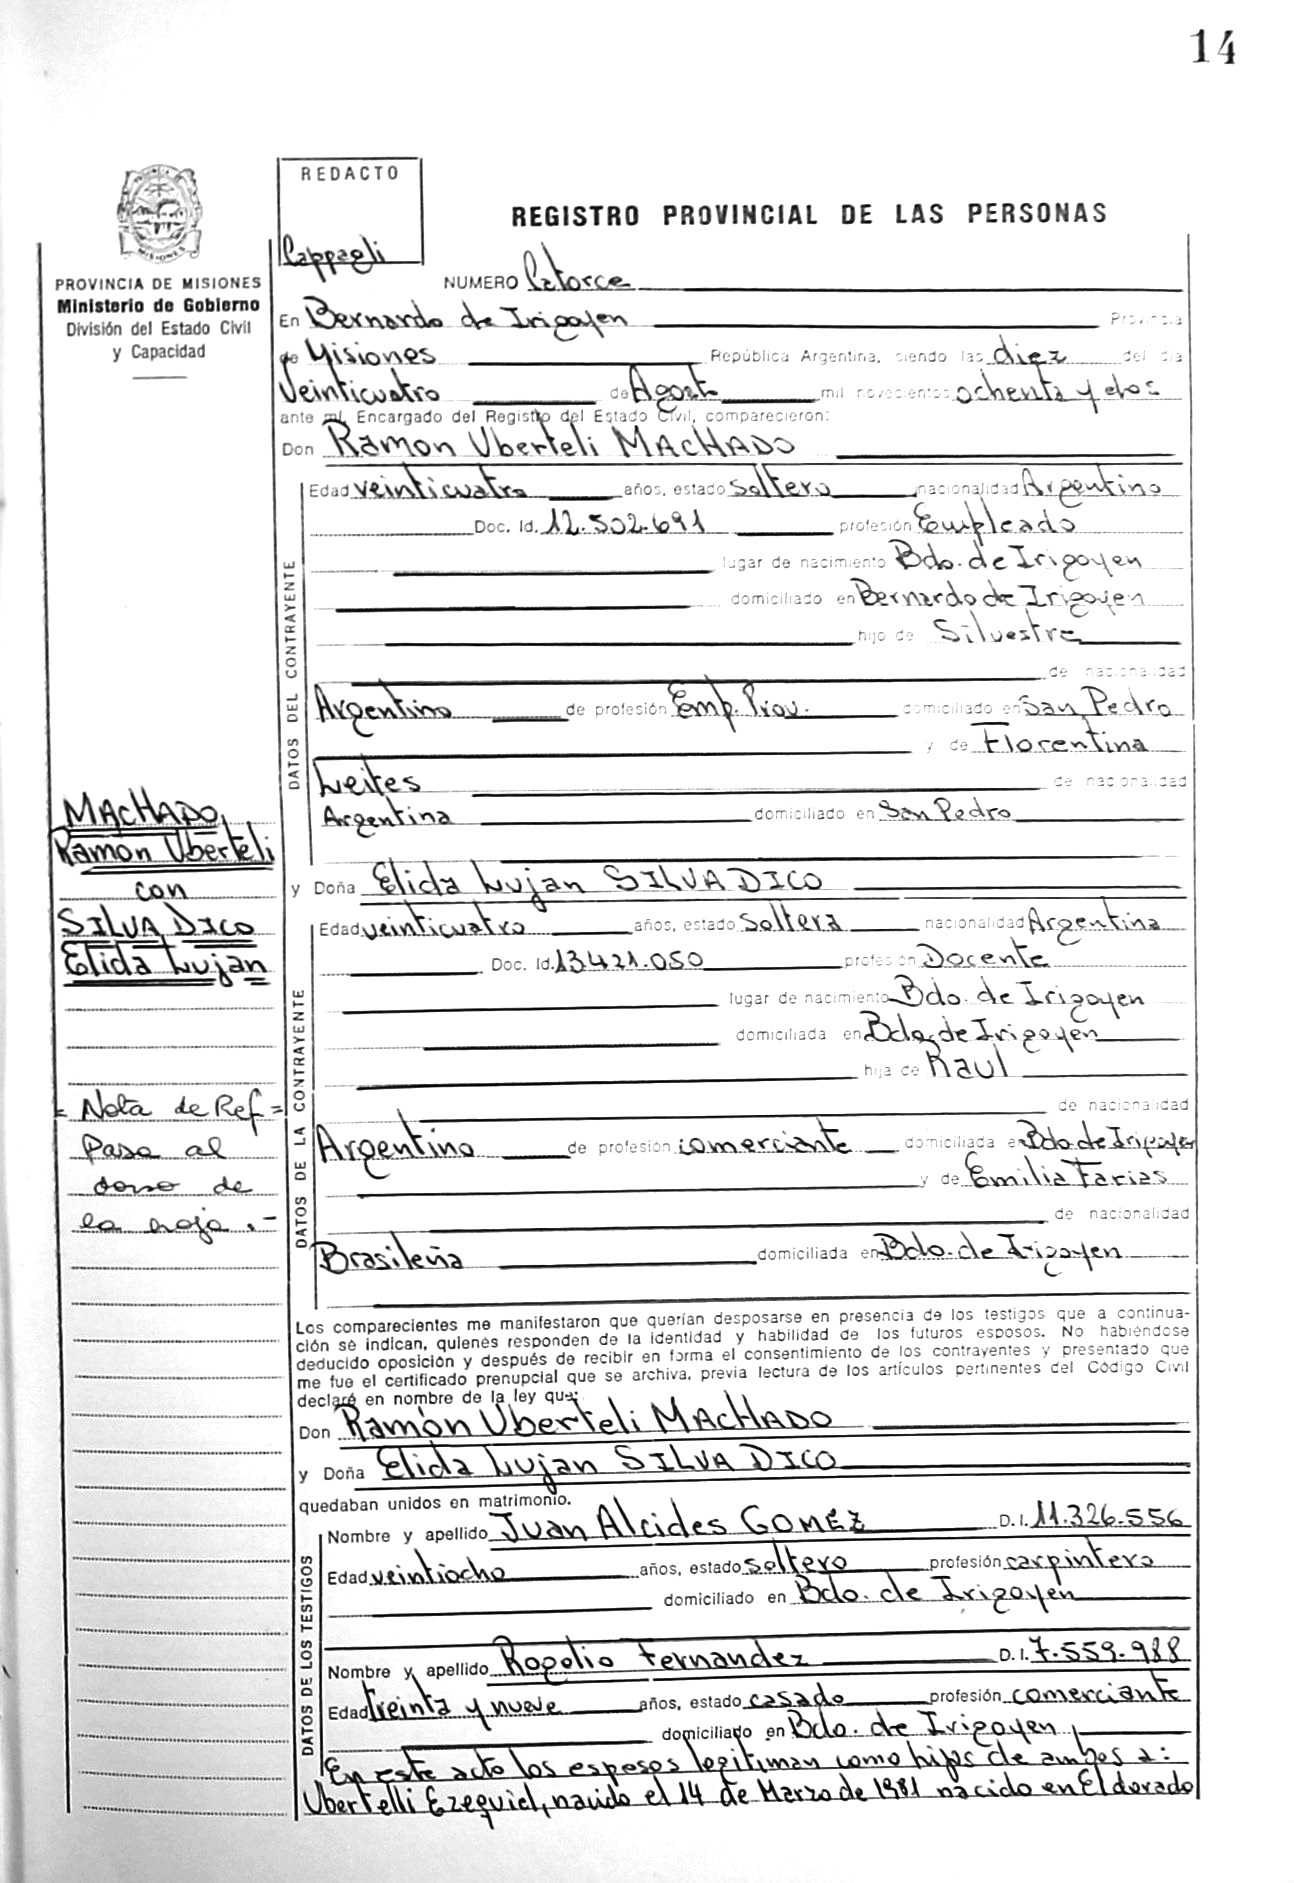 14
REDACTO
Cappagli
PROVINCIA DE MISIONES
Ministerio de Gobierno
División del Estado Civil
y Capacidad
MISIONES
REGISTRO PROVINCIAL DE LAS PERSONAS
NUMERO Catorce
En Bernardo de Irigoyen Provincia
de Misiones República Argentina, siendo las diez del dia
Veinticuatro de Agosto mil novecientos ochenta y dos
ante mí, Encargado del Registro del Estado Civil, comparecieron:
Don Ramon Uberteli MACHADO
DATOS DEL CONTRAYENTE
Edad veinticuatro años, estado soltero nacionalidad Argentino
Doc. Id. 12.502.691 profesión Empleado
lugar de nacimiento Bdo. de Irigoyen
domiciliado en Bernardo de Irigoyen
hijo de Silvestre
de nacionalidad
Argentino de profesión Emp. Prov. domiciliado en San Pedro
y de Florentina
Leites de nacionalidad
Argentina domiciliado en San Pedro
y Doña Elida Lujan SILVA DICO
DATOS DE LA CONTRAYENTE
Edad veinticuatro años, estado soltera nacionalidad Argentina
Doc. Id. 13421.050 profesión Docente
lugar de nacimiento Bdo. de Irigoyen
domiciliada en Bdo. de Irigoyen
hija de Raul
de nacionalidad
Argentino de profesión comerciante domiciliada en Bdo de Irigoyen
y de Emilia Farias
de nacionalidad
Brasileña domiciliada en Bdo. de Irigoyen
MACHADO,
Ramon Uberteli
con
SILVA DICO
Elida Lujan
= Nota de Ref =
Pasa al
dorso de
la hoja .-
Los comparecientes me manifestaron que querían desposarse en presencia de los testigos que a continua-
ción se indican, quienes responden de la identidad y habilidad de los futuros esposos. No habiéndose
deducido oposición y después de recibir en forma el consentimiento de los contrayentes y presentado que
me fue el certificado prenupcial que se archiva, previa lectura de los artículos pertinentes del Código Civil
declaré en nombre de la ley que:
Don Ramón Uberteli MACHADO
y Doña Elida Lujan SILVA DICO
quedaban unidos en matrimonio.
DATOS DE LOS TESTIGOS
Nombre y apellido Juan Alcides GOMEZ D. I. 11.326.556
Edad veintiocho años, estado soltero profesión carpintero
domiciliado en Bdo. de Irigoyen
Nombre y apellido Rogelio Fernandez D. I. 7.559.988
Edad treinta y nueve años, estado casado profesión comerciante
domiciliado en Bdo. de Irigoyen
En este acto los esposos legitiman como hijos de ambos a:
Ubertelli Ezequiel, nacido el 14 de Marzo de 1981 nacido en Eldorado